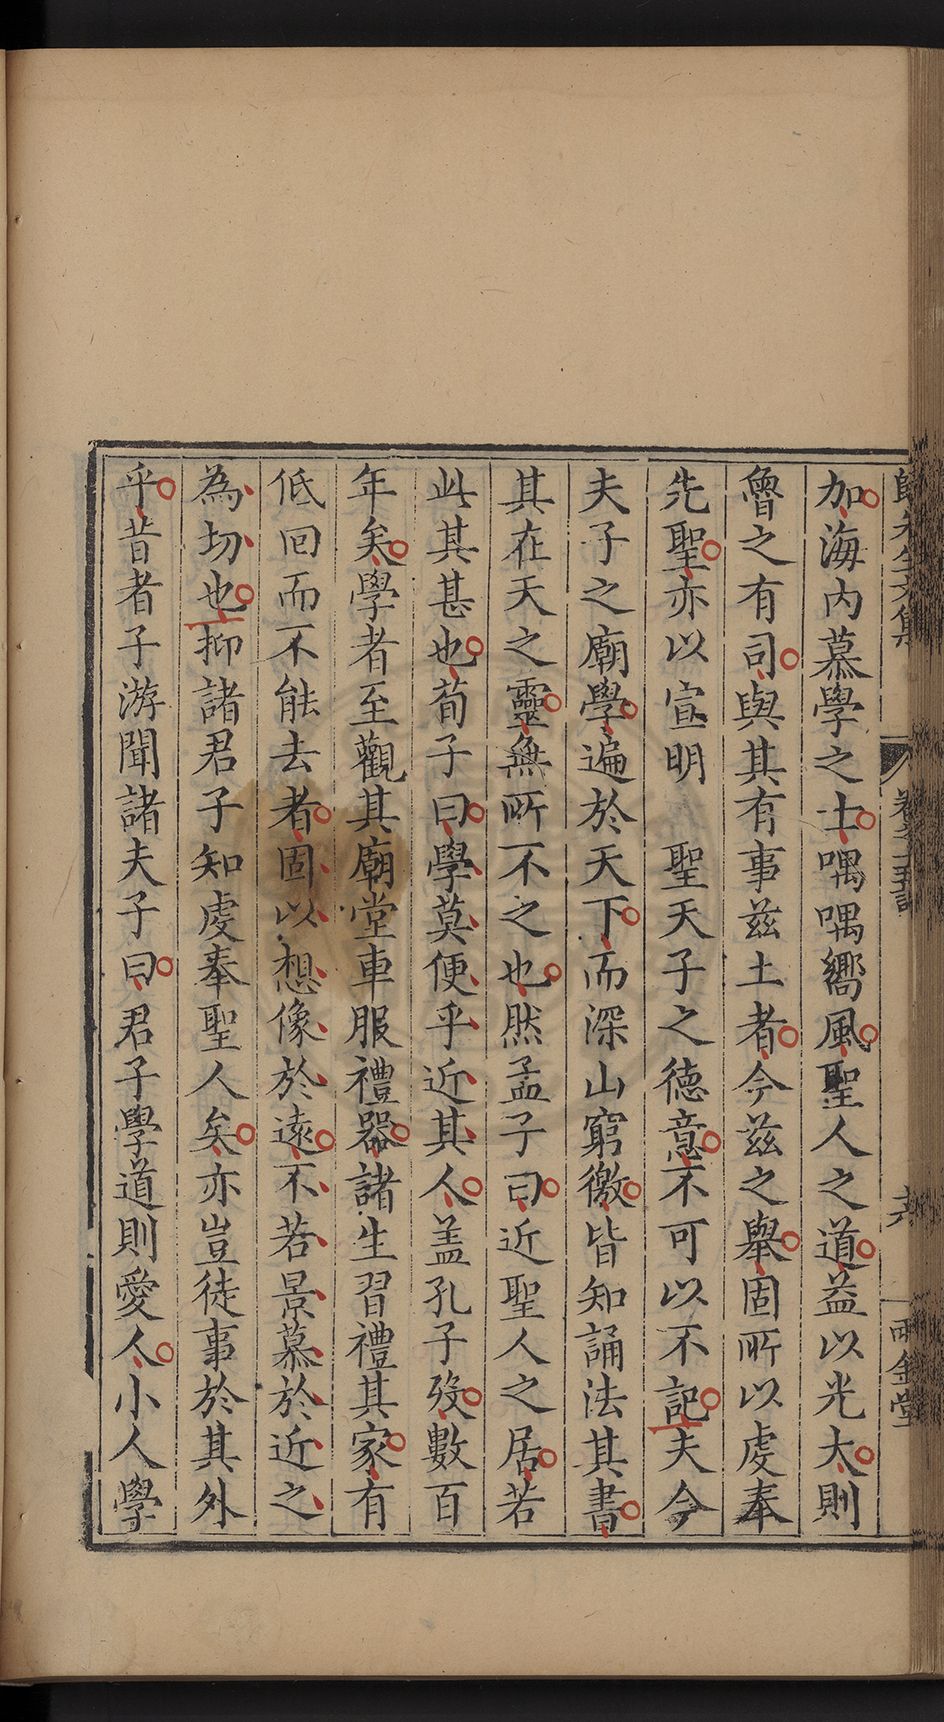 加海內慕學之士喁喁嚮風聖人之道益以光大則
魯之有司與其有事茲土者今茲之舉固所以虔奉
先聖亦以宣明　聖天子之德意不可以不記夫今
夫子之廟學遍於天下而深山窮徼皆知誦法其書
其在天之靈無所不之也然孟子曰近聖人之居若
此其甚也荀子曰學莫便乎近其人盖孔子歿數百
年矣學者至觀其廟堂車服禮器諸生習禮其家有
低回而不能去者固以想像於遠不若景慕於近之
為切也抑諸君子知虔奉聖人矣亦豈徒事於其外
乎昔者子游聞諸夫子曰君子學道則愛人小人學